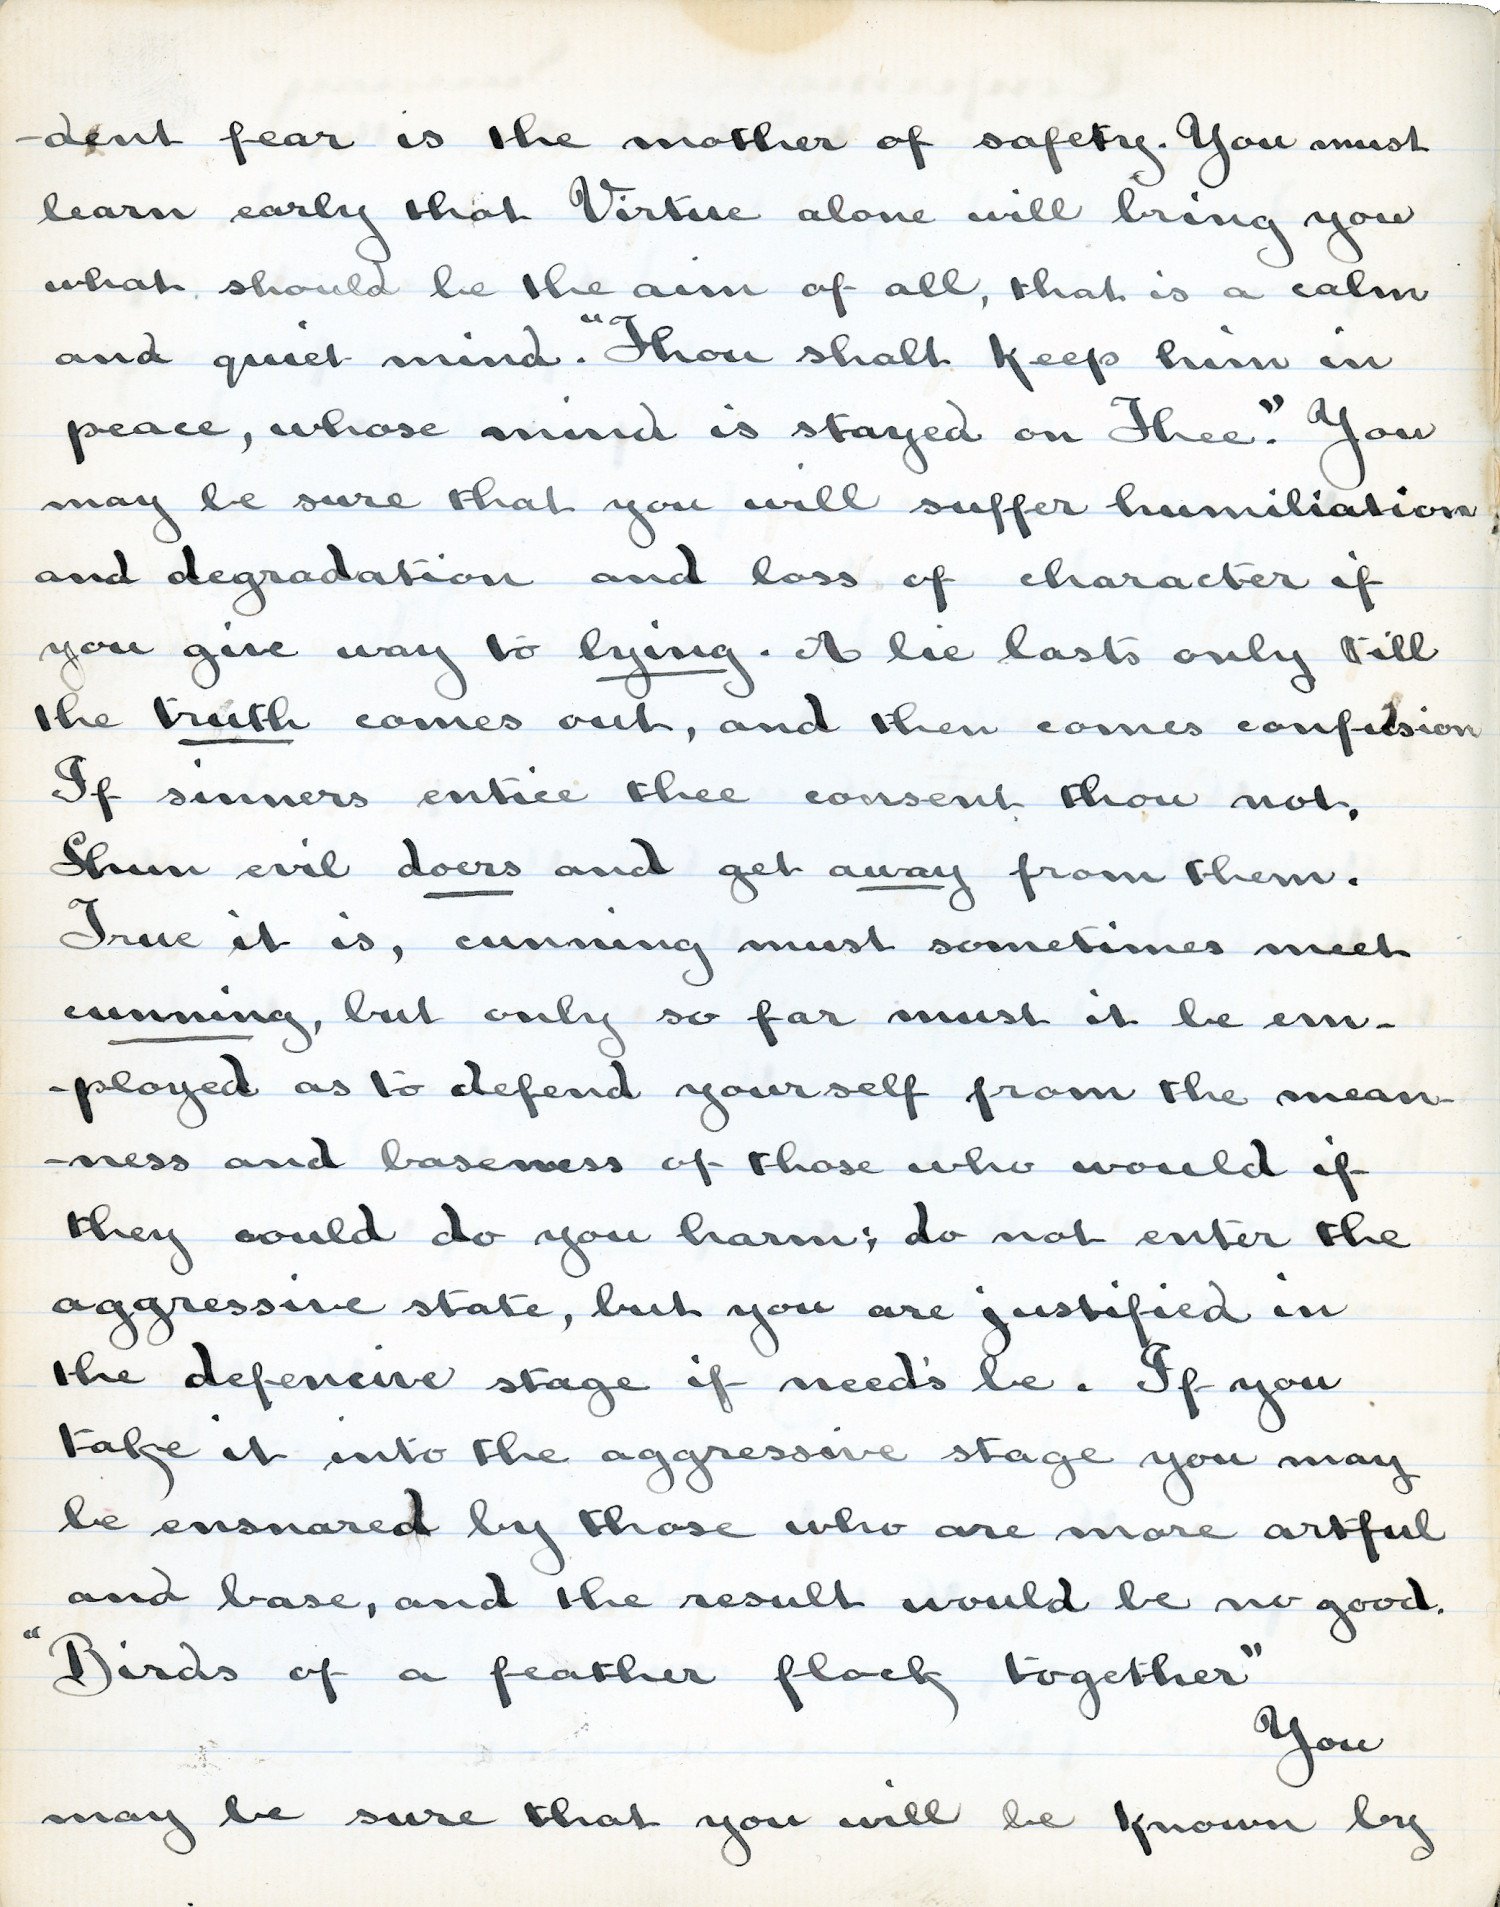 -dent fear is the mother of safety. You must
learn early that Virtue alone will bring you
what should be the aim of all, that is a calm
and quiet mind. "Thou shalt keep him in
peace, whose mind is stayed on Thee." You
may be sure that you will suffer humiliation
and degradation and loss of character if
you give way to lying. A lie lasts only till
the truth comes out, and then comes confusion
If sinners entice thee consent thou not,
Shun evil doers and get away from them.
True it is, cunning must sometimes meet
cunning, but only so far must it be em-
-ployed as to defend yourself from the mean-
-ness and baseness of those who would if
they could do you harm; do not enter the
aggressive state, but you are justified in
the defencive stage if need's be. If you
take it into the aggressive stage you may
be ensnared by those who are more artful
and base, and the result would be no good.
"Birds of a feather flock together"
You
may be sure that you will be known by